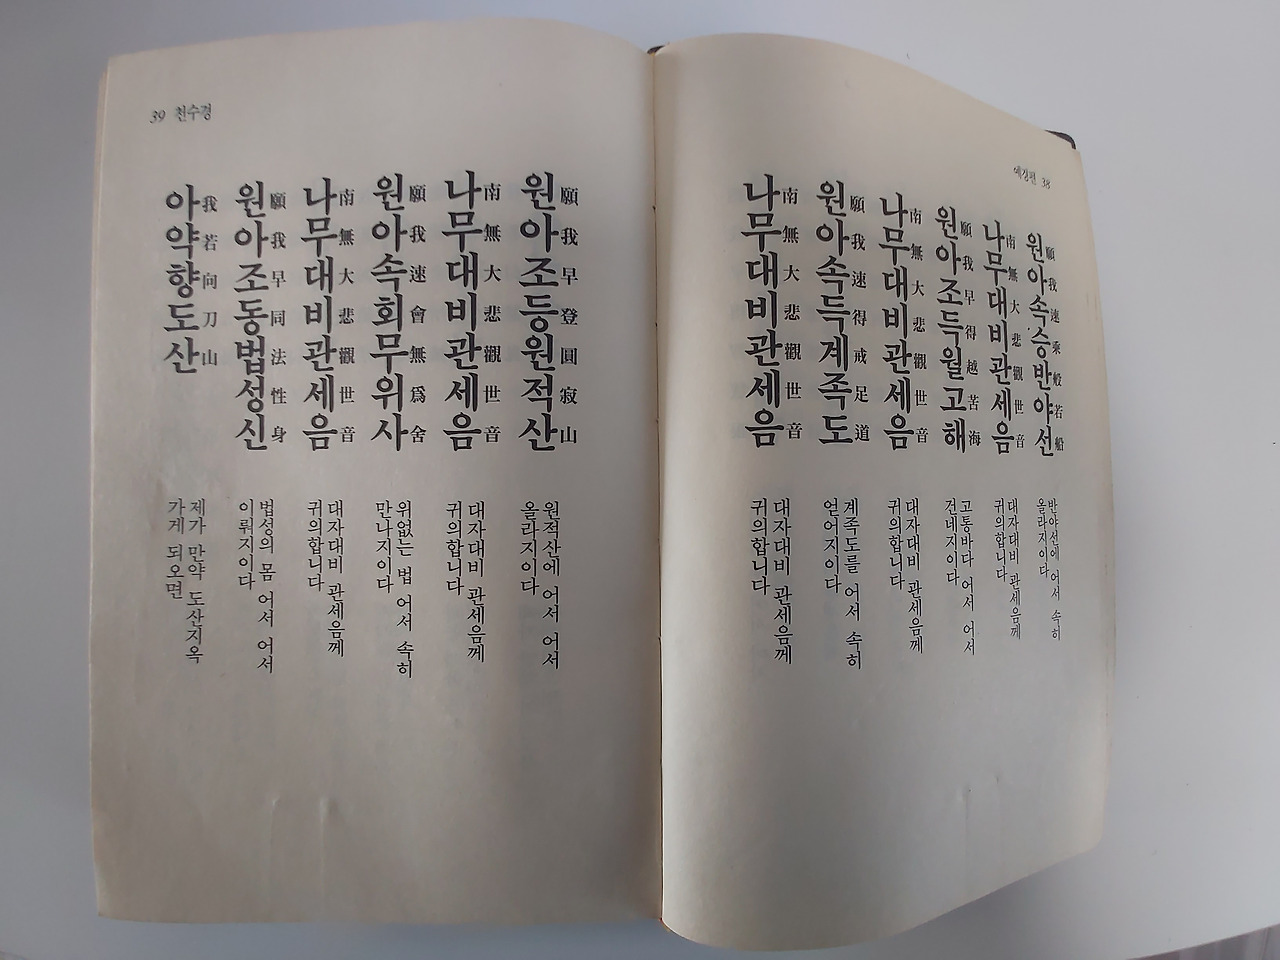 예경편 38
원아속승반야선
願我速乘般若船
반야선에 어서 속히
올라지이다
나무대비관세음
南無大悲觀世音
대자대비 관세음께
귀의합니다
원아조득월고해
願我早得越苦海
고통바다 어서 어서
건네지이다
나무대비관세음
南無大悲觀世音
대자대비 관세음께
귀의합니다
원아속득계족도
願我速得戒足道
계족도를 어서 속히
얻어지이다
나무대비관세음
南無大悲觀世音
대자대비 관세음께
귀의합니다
39 천수경
원아조등원적산
願我早登圓寂山
원적산에 어서 어서
올라지이다
나무대비관세음
南無大悲觀世音
대자대비 관세음께
귀의합니다
원아속회무위사
願我速會無爲舍
위없는 법 어서 속히
만나지이다
나무대비관세음
南無大悲觀世音
대자대비 관세음께
귀의합니다
원아조동법성신
願我早同法性身
법성의 몸 어서 어서
이뤄지이다
아약향도산
我若向刀山
제가 만약 도산지옥
가게 되오면